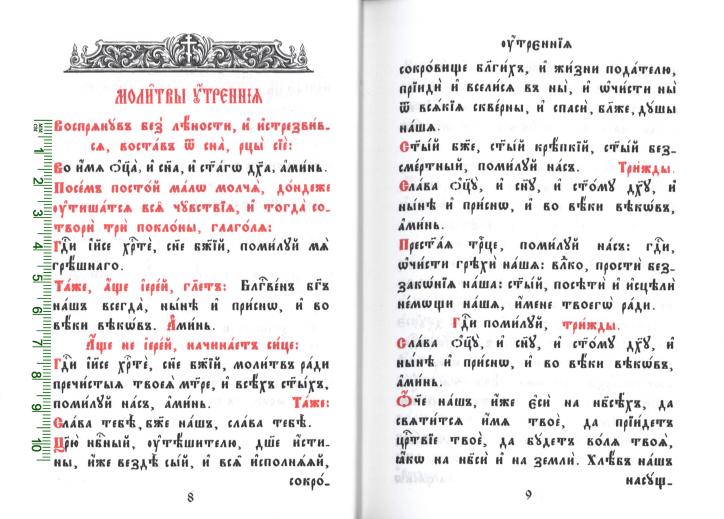 МОЛИ̑ТВЫ ᲂУ҆́ТРЕННІѦ
Воспрѧ́нꙋвъ без̾ лѣ́ности, и҆ и҆стрезви́в-
сѧ, воста́въ ѿ сна̀, рцы̀ сїѐ:
Во и҆́мѧ ѻ҆ц҃а̀, и҆ сн҃а, и҆ ст҃а́гѡ дх҃а, а҆ми́нь.
Посе́мъ посто́й ма́лѡ молчѧ̀, до́ндеже
ᲂу҆тиша́тсѧ всѧ̑ чꙋ̑вствїѧ, и҆ тогда̀ со-
творѝ трѝ покло́ны, глаго́лѧ:
Гдⷭ҇и і҆и҃се хрⷭ҇тѐ, сн҃е бж҃їй, поми́лꙋй мѧ̀
грѣ́шнаго.
Та́же, а҆́ще і҆ере́й, гл҃етъ: Блгⷭ҇ве́нъ бг҃ъ
на́шъ всегда̀, ны́нѣ и҆ при́снѡ, и҆ во
вѣ́ки вѣкѡ́въ. А҆ми́нь.
А҆́ще не і҆ере́й, начина́етъ си́це:
Гдⷭ҇и і҆и҃се хрⷭ҇тѐ, сн҃е бж҃їй, моли́твъ ра́ди
пречи́стыѧ твоеѧ̀ мт҃ре, и҆ всѣ́хъ ст҃ы́хъ,
поми́лꙋй на́съ, а҆ми́нь. Та́же:
Сла́ва тебѣ̀, бж҃е на́шъ, сла́ва тебѣ̀.
Цр҃ю̀ нбⷭ҇ный, ᲂу҆тѣ́шителю, дш҃е и҆́сти-
ны, и҆́же вездѣ̀ сы́й, и҆ всѧ̑ и҆сполнѧ́ѧй,
сокро́-
8
ᲂУ҆́ТРЕННІѦ
сокро́вище бл҃ги́хъ, и҆ жи́зни пода́телю,
прїидѝ и҆ всели́сѧ въ ны̀, и҆ ѡ҆чи́сти ны̀
ѿ всѧ́кїѧ скве́рны, и҆ спасѝ, бл҃же, дꙋ́шы
на́шѧ.
Ст҃ы́й бж҃е, ст҃ы́й крѣ́пкїй, ст҃ы́й без-
сме́ртный, поми́лꙋй на́съ. Три́жды.
Сла́ва ѻ҆ц҃ꙋ̀, и҆ сн҃ꙋ, и҆ ст҃о́мꙋ дх҃ꙋ, и҆
ны́нѣ и҆ при́снѡ, и҆ во вѣ́ки вѣкѡ́въ,
а҆ми́нь.
Прест҃а́ѧ трⷪ҇це, поми́лꙋй на́съ: гдⷭ҇и,
ѡ҆чи́сти грѣхѝ на́шѧ: влⷣко, простѝ без-
закѡ́нїѧ на́ша: ст҃ы́й, посѣтѝ и҆ и҆сцѣлѝ
не́мѡщи на́шѧ, и҆́мене твоегѡ̀ ра́ди.
Гдⷭ҇и поми́лꙋй, три́жды.
Сла́ва ѻ҆ц҃ꙋ̀, и҆ сн҃ꙋ, и҆ ст҃о́мꙋ дх҃ꙋ, и҆
ны́нѣ и҆ при́снѡ, и҆ во вѣ́ки вѣкѡ́въ,
а҆ми́нь.
Ѻ҆́ч҃е на́шъ, и҆́же є҆сѝ на нбⷭ҇ѣ́хъ, да
свѧти́тсѧ и҆́мѧ твоѐ, да прїи́детъ
црⷭ҇твїе твоѐ, да бꙋ́детъ во́лѧ твоѧ̀,
ꙗ҆́кѡ на нб҃сѝ и҆ на землѝ. Хлѣ́бъ на́шъ
насꙋ́щ-
9
ММ
СМ
1
2
3
4
5
6
7
8
9
10